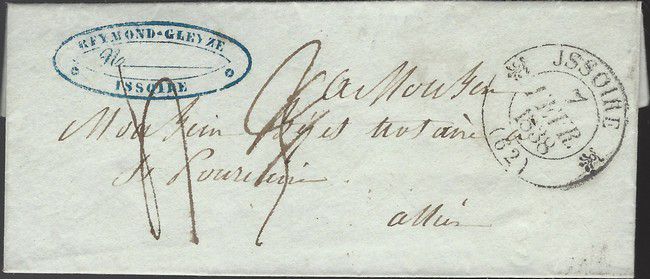 REYMOND-GLEYZE
No
ISSOIRE
ISSOIRE
7
FEVR
1838
(62)
A Monsieur
Monsieur notaire
St Pourcain
allier